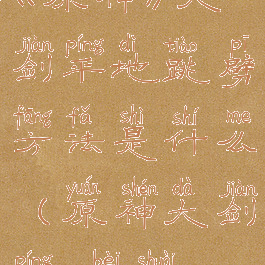 《原神》大
jiàn píng dì tiào pī
剑平地跳劈
fāng fǎ shì shí me
方法是什么
yuán shén dà jiàn
（原神大剑
píng bèi shuǐ